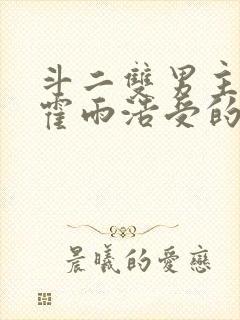 斗二雙男主
霍雨浩受的
晨曦的愛戀